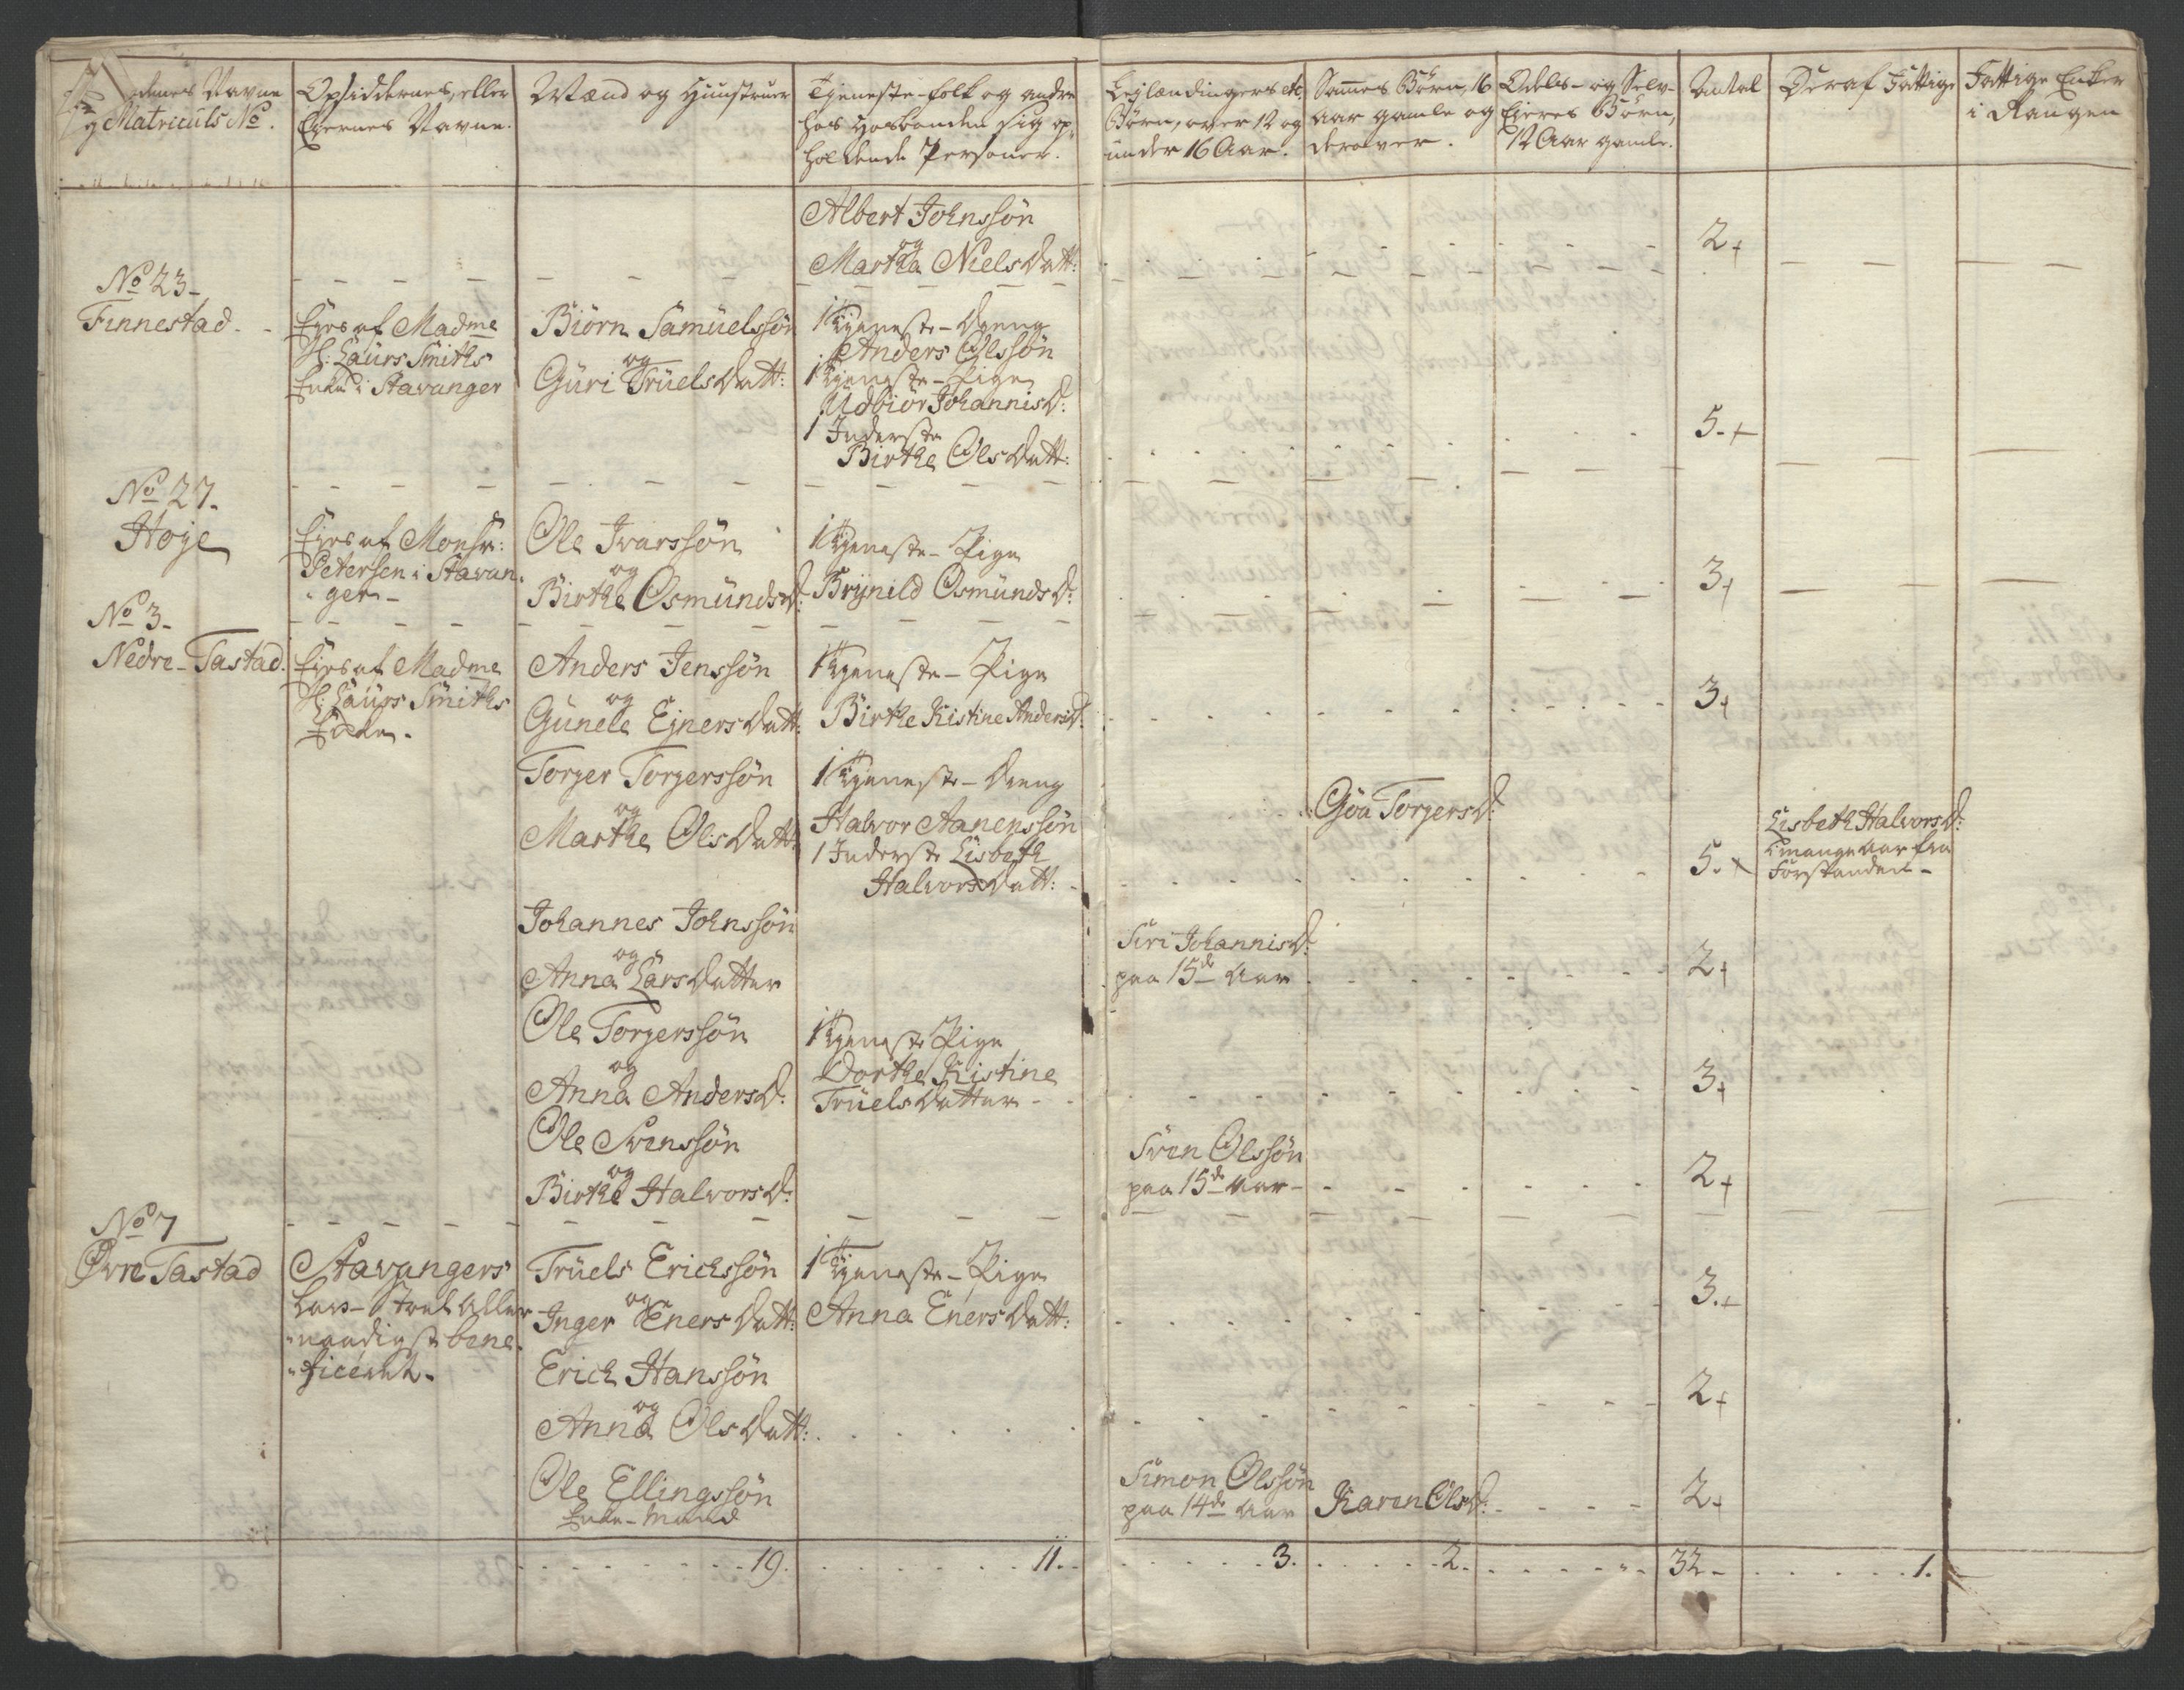 dernes Navne
og Matriculs No.
Opsiddernes, eller
Ejernes Navne.
Mænd og Hunstruer
Tjeneste-folk og andre
hos Hosbonden sig op-
holdende Personer.
Lejlændingers etc.
Börn, over 12 og
under 16 Aar.
Sames Börn, 16
Aar gamle og
derover.
Odels- og Selv-
Ejeres Börn,
12 Aar gamle.
Antal
Deraf Fattige
Fattige Enker
i Rangen
Albert Johnssøn
og
Martha Niels Datt:
2+
No 23-
Finnestad.
Ejes af Madme
Sl: Laurs Smiths
Enke i Stavanger
Biörn Samüelssøn
og
Güri Trüels Datt:
1 Tjeneste-Dreng
Anders Olssøn
1 Tjeneste-Pige
Udbiör Johannis D:
1 Inderste
Birthe Ols Datt:
5.+
No 27.
Høye
Ejes af Monsr:
Petersen i Stavan-
ger-
Ole Ivarssøn
og
Birthe Osmünds D:
1 Tjeneste-Pige
Brÿnild Osmünds D:
3+
No 3-
Nedre-Tastad.
Ejes af Madme
Sl: Laurs Smiths
Enke.
Anders Jenssøn
og
Gunele Ejners Datt:
1 Tjeneste-Pige
Birthe Kistine Anders D:
3+
Torger Torgerssøn
og
Marthe Ols Datt:
1 Tjeneste-Dreng
Halvor Aanenssøn
1 Inderste Lisbeth
Halvors Datt:
Göa Torgers D:
5.+
Lisbeth Halvors D:
i mange Aar fra
Forstanden-
Johannes Johnssøn
og
Anna Lars Datter
Siri Johannis D:
paa 15de Aar
2+
Ole Torgerssøn
og
Anna Anders D:
1 Tjeneste Pige
Dorthe Kistine
Trüels Datter
3+
Ole Svenssøn
og
Birthe Halvors D:
Sven Olssøn
paa 15de Aar
2+
No 7
Øvre Tastad
Stavangers
Laus-Stoel Aller
naadigst bene-
ficeret.
Trüels Ericssøn
og
Inger Eners Datt:
1 Tjeneste-Pige
Anna Eners Datt:
3.+
Erich Hanssøn
og
Anna Ols Datt:
2+
Ole Ellingssøn
Enke-Mand
Simon Olssøn
paa 14de Aar
Karen Ols D:
2+
19.
11.
3.
2.
32-
1.